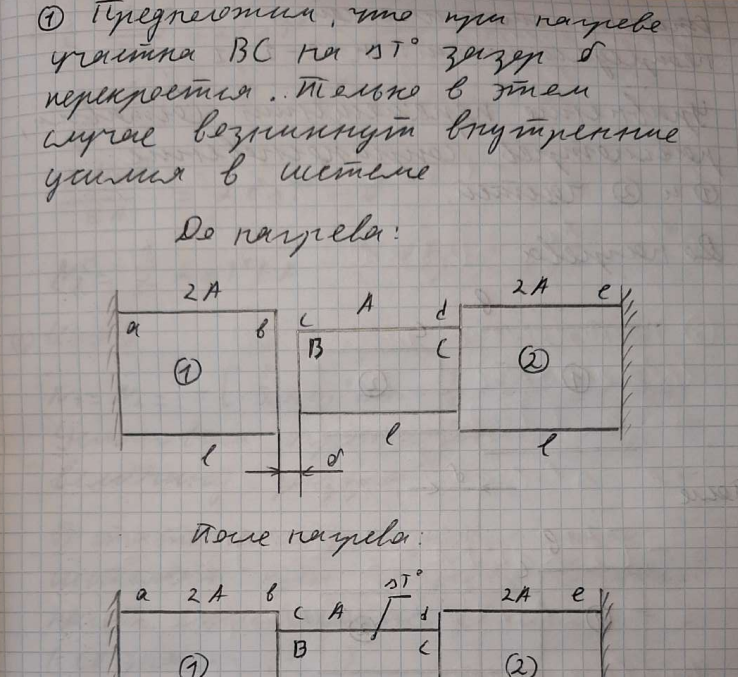 ① Предположим, что при нагреве
участка BC на ΔT° зазор δ
перекроется. Только в этом
случае возникнут внутренние
усилия в системе
До нагрева:
2A A 2A e
a в c d
① B C ②
l l l
δ
После нагрева:
ΔT°
a 2A в c A d 2A e
① B C ②